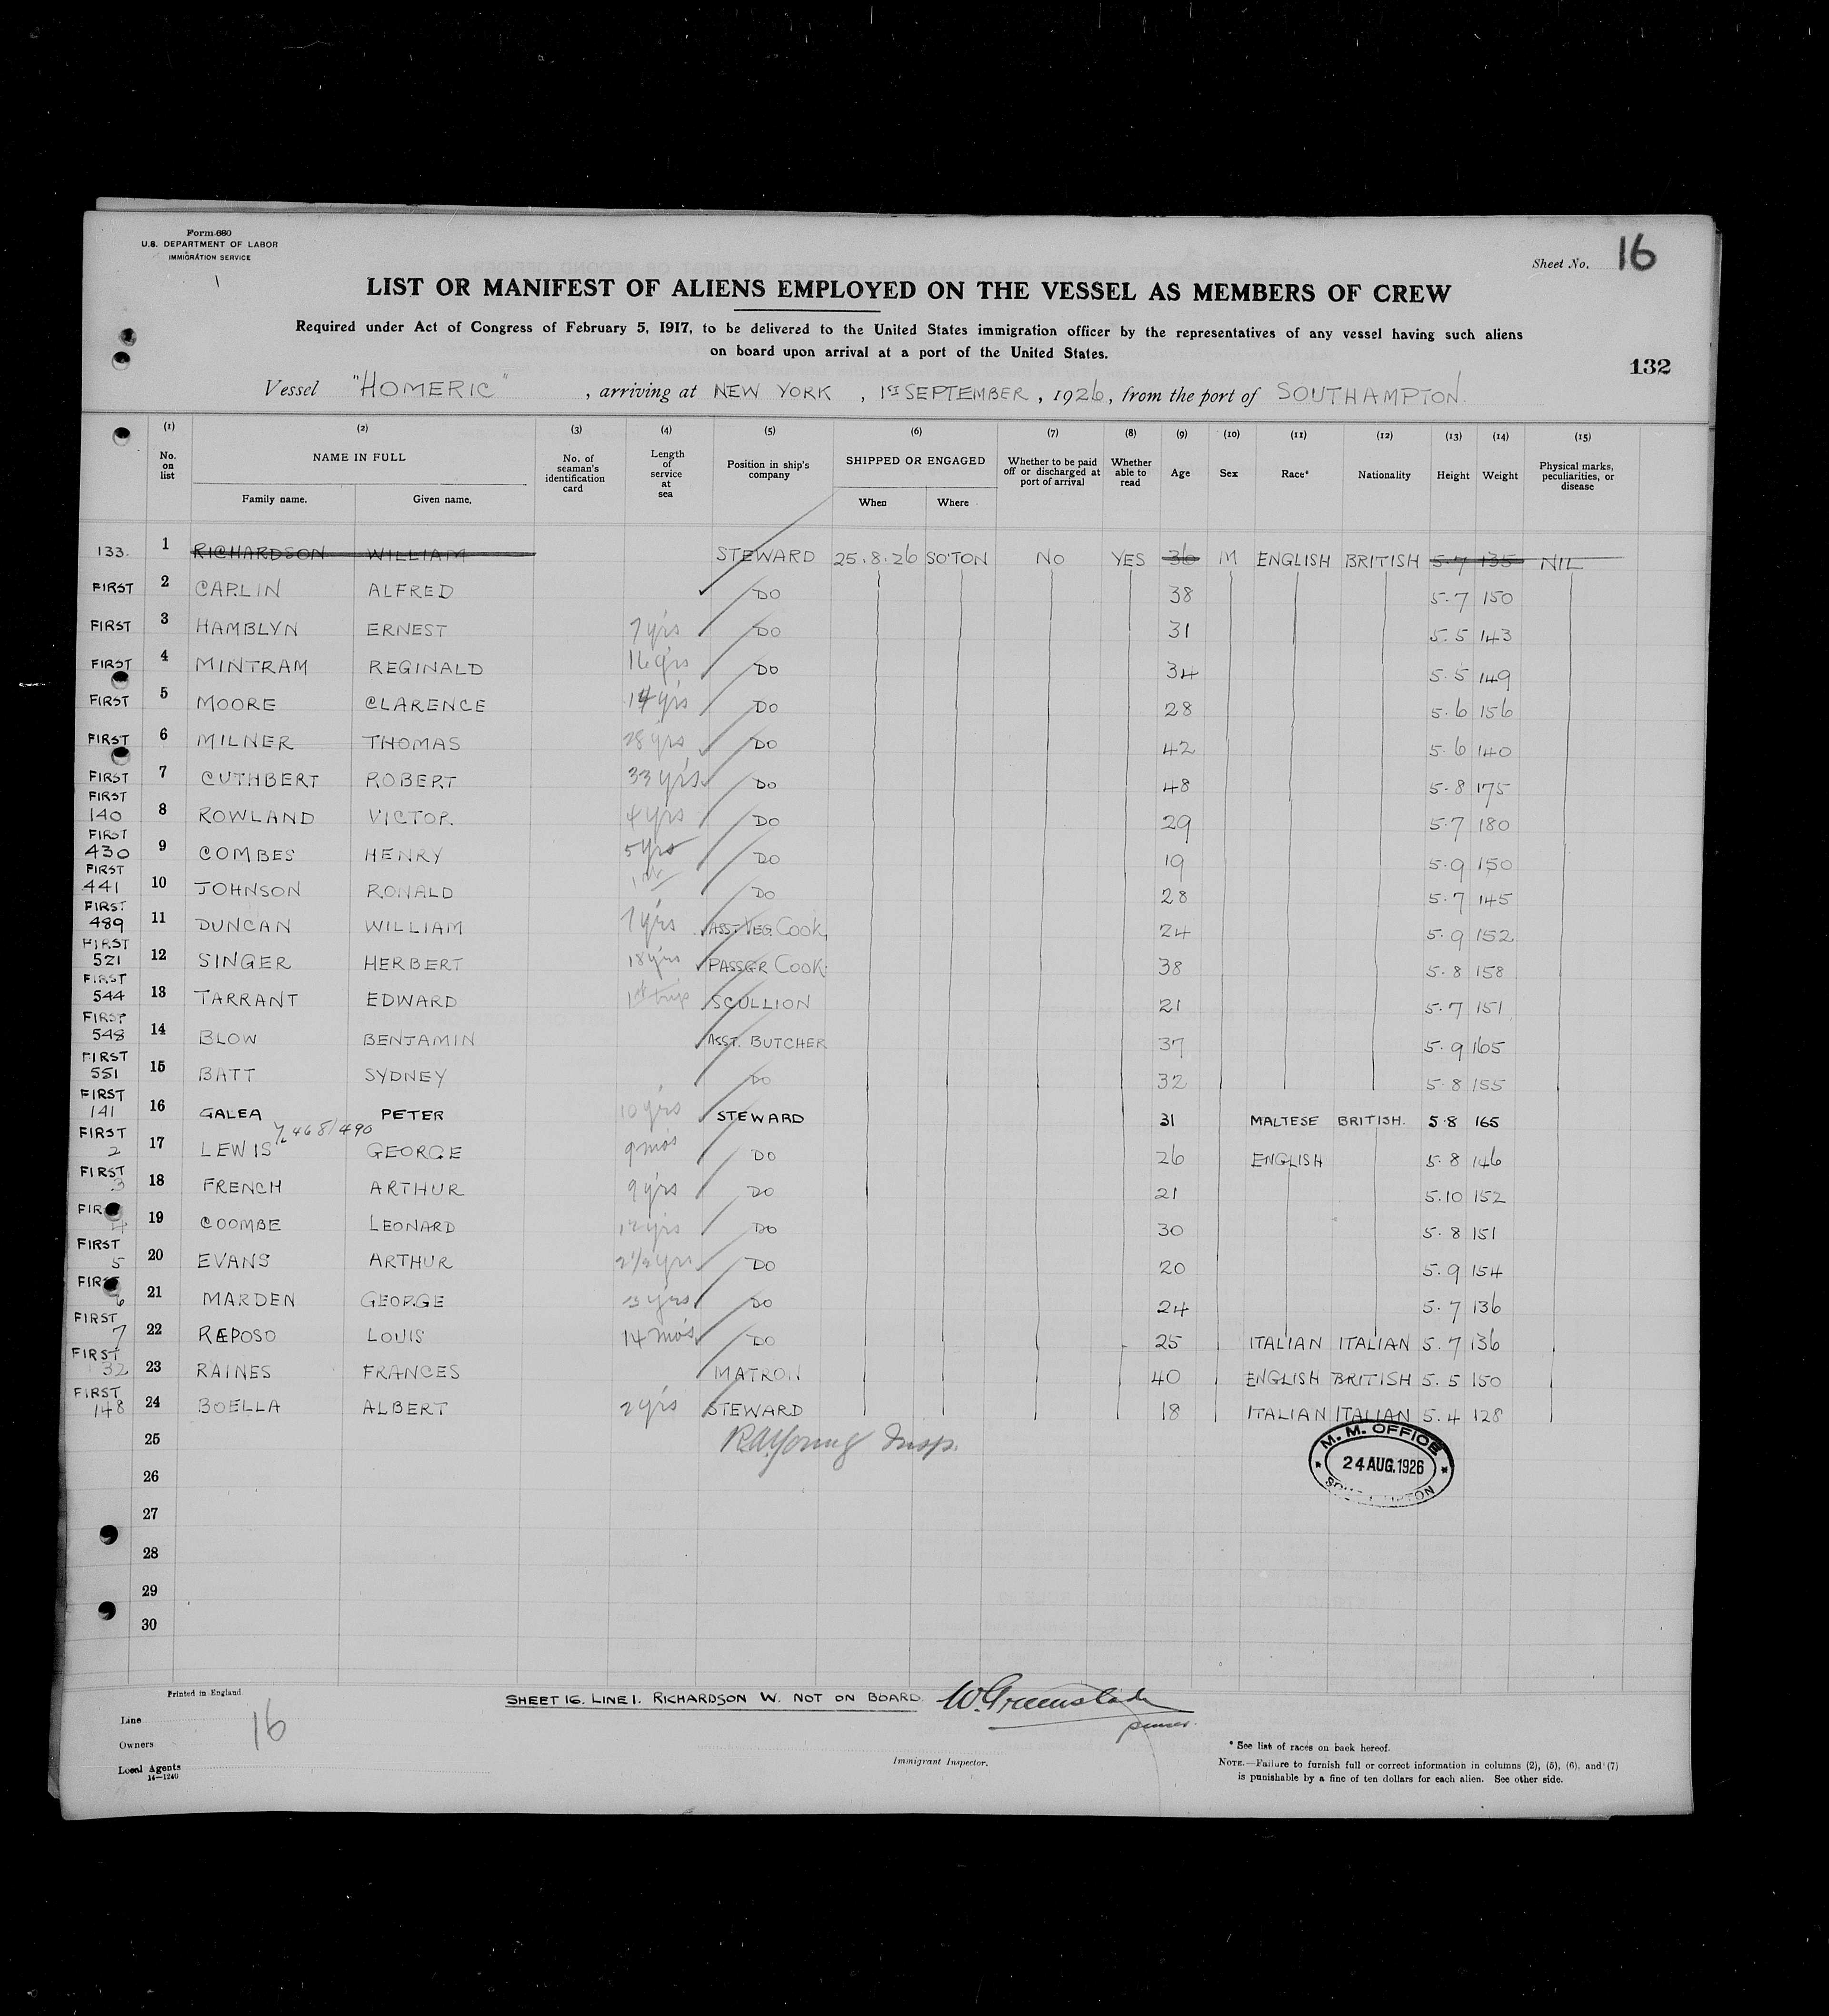 Form 680
U.S. DEPARTMENT OF LABOR
IMMIGRATION SERVICE
Sheet No. 16
LIST OR MANIFEST OF ALIENS EMPLOYED ON THE VESSEL AS MEMBERS OF CREW
Required under Act of Congress of February 5, 1917, to be delivered to the United States immigration officer by the representatives of any vessel having such aliens
on board upon arrival at a port of the United States.
132
Vessel "HOMERIC" , arriving at NEW YORK , 1ST SEPTEMBER , 1926, from the port of SOUTHAMPTON.
(1) (2) (3) (4) (5) (6) (7) (8) (9) (10) (11) (12) (13) (14) (15)
No. on list NAME IN FULL Family name. Given name. No. of seaman's identification card Length of service at sea Position in ship's company SHIPPED OR ENGAGED When Where Whether to be paid off or discharged at port of arrival Whether able to read Age Sex Race* Nationality Height Weight Physical marks, peculiarities, or disease
133. 1 RICHARDSON WILLIAM STEWARD 25.8.26 SO'TON NO YES 36 M ENGLISH BRITISH 5.7 135 NIL
FIRST 2 CARLIN ALFRED DO 38 5.7 150
FIRST 3 HAMBLYN ERNEST 7 yrs DO 31 5.5 143
FIRST 4 MINTRAM REGINALD 16 yrs DO 34 5.5 149
FIRST 5 MOORE CLARENCE 14 yrs DO 28 5.6 156
FIRST 6 MILNER THOMAS 28 yrs DO 42 5.6 140
FIRST 7 CUTHBERT ROBERT 33 yrs DO 48 5.8 175
FIRST 140 8 ROWLAND VICTOR 4 yrs DO 29 5.7 180
FIRST 430 9 COMBES HENRY 5 yrs DO 19 5.9 150
FIRST 441 10 JOHNSON RONALD DO 28 5.7 145
FIRST 489 11 DUNCAN WILLIAM 7 yrs ASST VEG. COOK 24 5.9 152
FIRST 521 12 SINGER HERBERT 18 yrs PASSGR COOK 38 5.8 158
FIRST 544 13 TARRANT EDWARD 1st trip SCULLION 21 5.7 151
FIRST 548 14 BLOW BENJAMIN ASST. BUTCHER 37 5.9 165
FIRST 551 15 BATT SYDNEY DO 32 5.8 155
FIRST 141 16 GALEA PETER 10 yrs STEWARD 31 MALTESE BRITISH. 5.8 165
468/490
FIRST 2 17 LEWIS GEORGE 9 mos DO 26 ENGLISH 5.8 146
FIRST 3 18 FRENCH ARTHUR 9 yrs DO 21 5.10 152
FIRST 4 19 COOMBE LEONARD 12 yrs DO 30 5.8 151
FIRST 5 20 EVANS ARTHUR 2 1/2 yrs DO 20 5.9 154
FIRST 6 21 MARDEN GEORGE 3 yrs DO 24 5.7 136
FIRST 7 22 RAPOSO LOUIS 14 mos DO 25 ITALIAN ITALIAN 5.7 136
FIRST 32 23 RAINES FRANCES MATRON 40 ENGLISH BRITISH 5.5 150
FIRST 148 24 BOELLA ALBERT 2 yrs STEWARD 18 ITALIAN ITALIAN 5.4 128
25 R.A. Young Insp.
M. M. OFFICE
24 AUG. 1926
SOUTHAMPTON
26
27
28
29
30
Printed in England
SHEET 16. LINE 1. RICHARDSON W. NOT ON BOARD. W. Greenslade
purser.
Line
16
Owners
Local Agents
14—1240
Immigrant Inspector.
* See list of races on back hereof.
NOTE.—Failure to furnish full or correct information in columns (2), (5), (6), and (7)
is punishable by a fine of ten dollars for each alien. See other side.